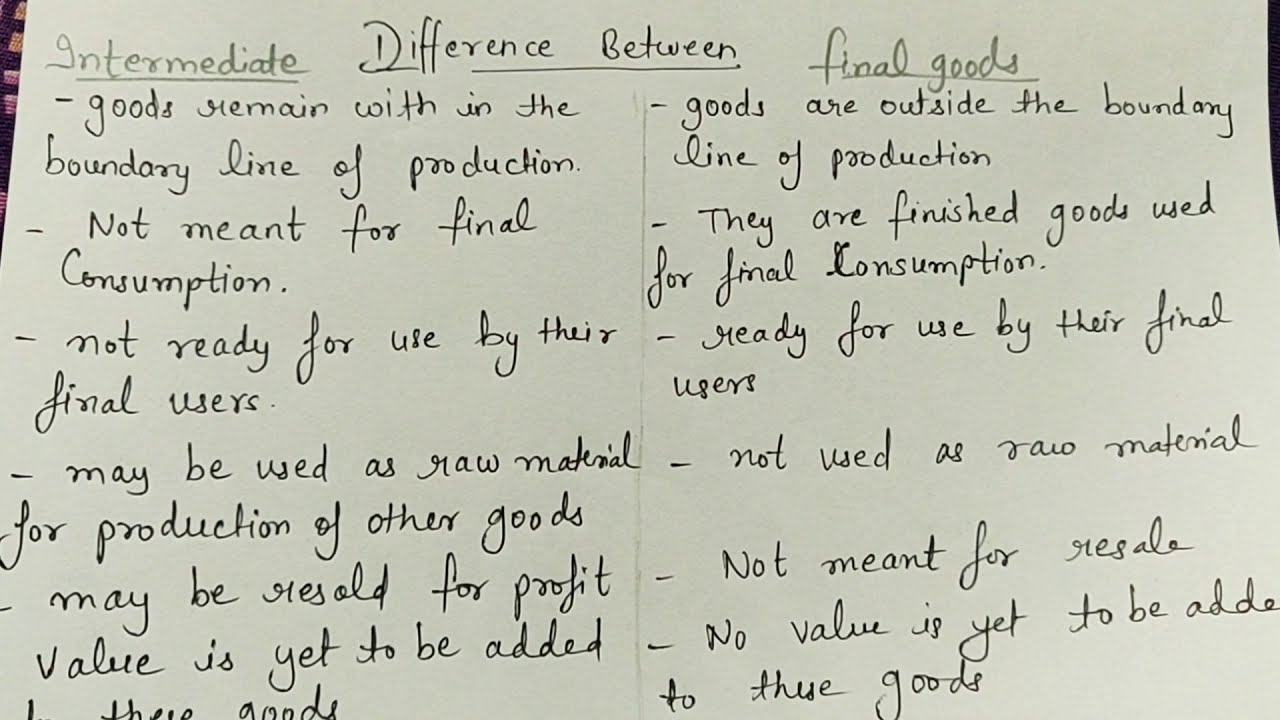 Intermediate Difference Between final goods
- goods remain with in the
boundary line of production.
- Not meant for final
Consumption.
- not ready for use by their
final users.
- may be used as raw material
for production of other goods
- may be resold for profit
Value is yet to be added
to these goods
- goods are outside the boundary
line of production
- They are finished goods used
for final Consumption.
- ready for use by their final
users
- not used as raw material
- Not meant for resale
- No value is yet to be adde
to these goods